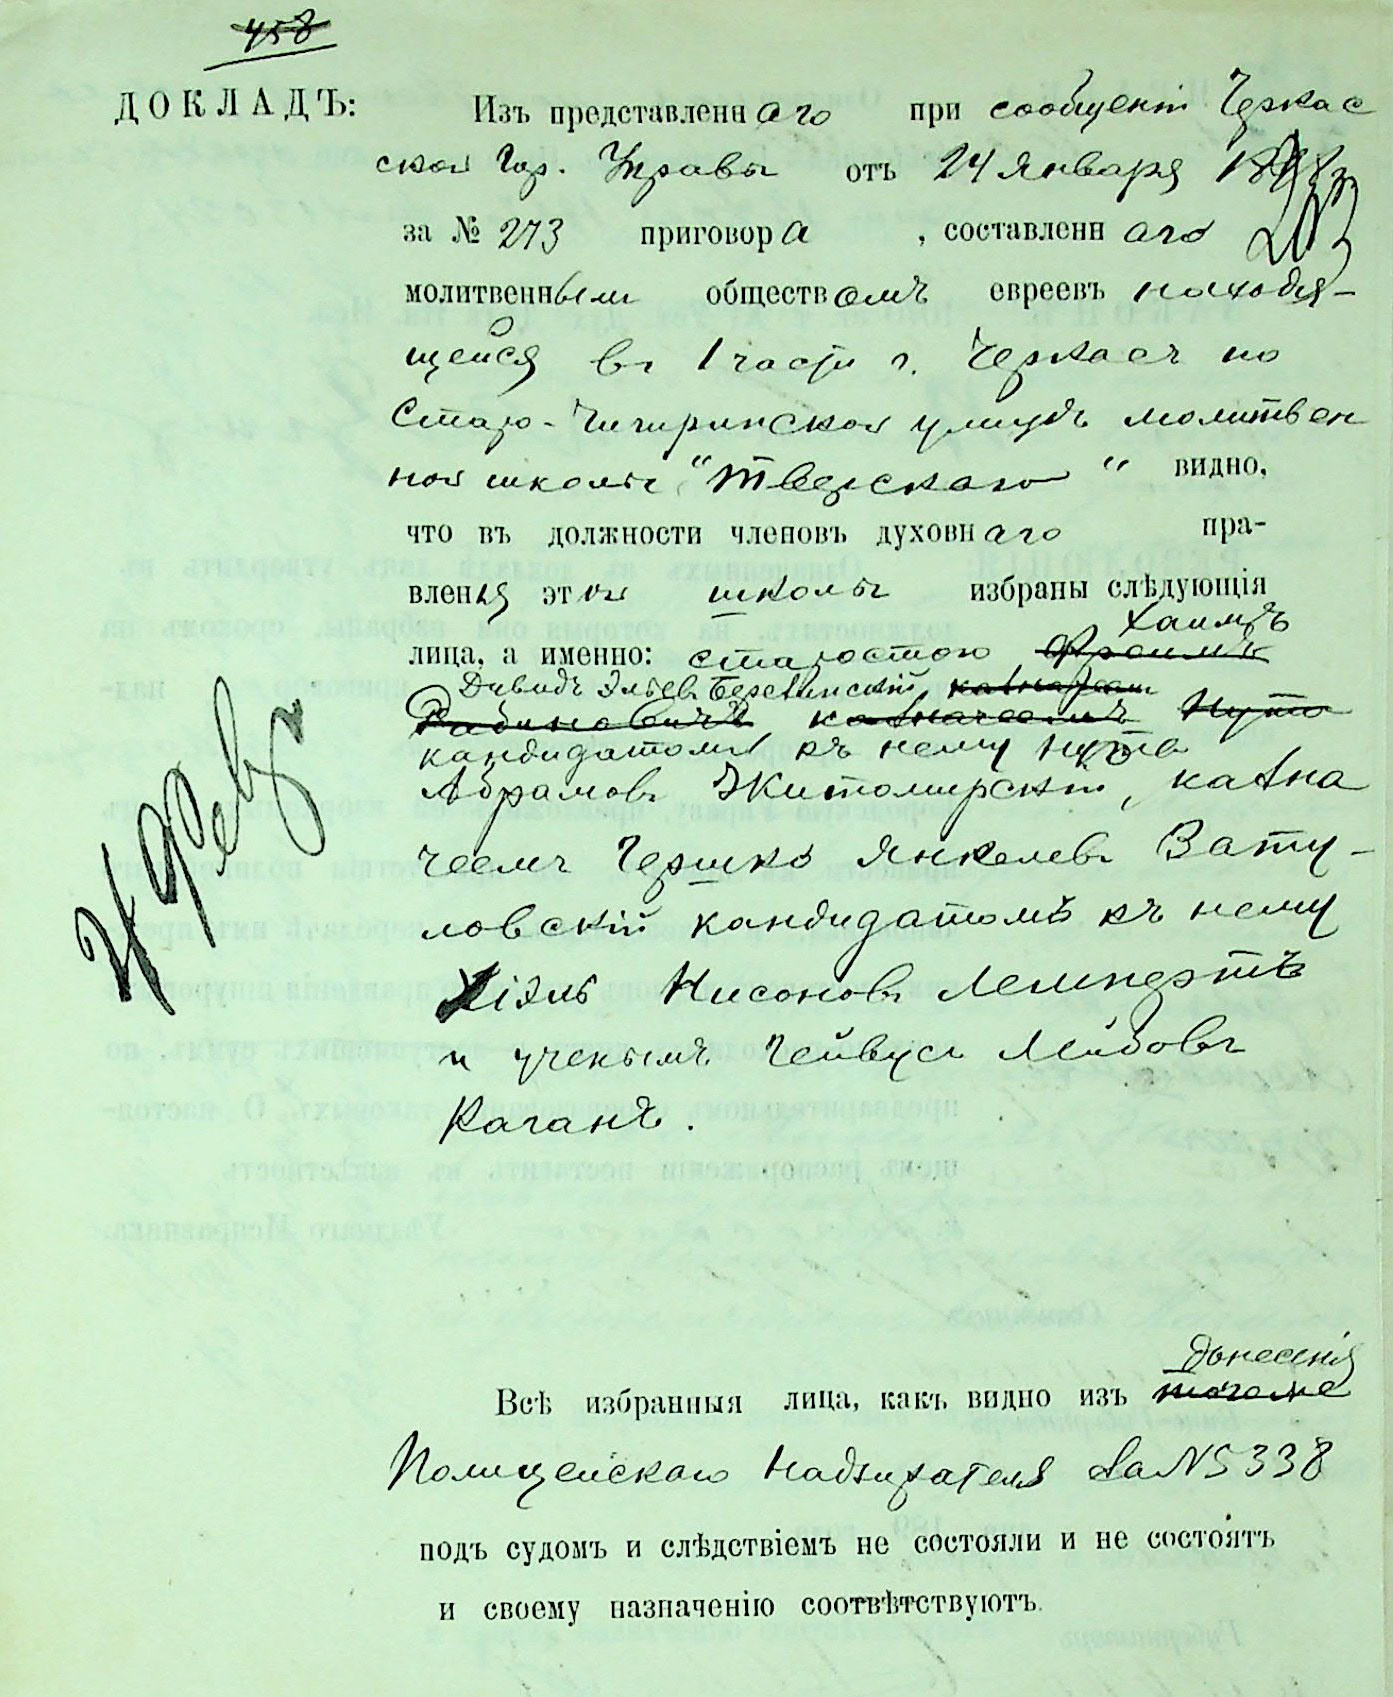 458
ДОКЛАДЪ: Изъ представленнаго при сообщеніи Черкас
ской Гор. Управы отъ 24 Января
за № 273 приговора, составленнаго
молитвеннымъ обществомъ евреевъ находя-
щейся въ 1 части г. Черкасъ по
Старо-Чигиринской улицѣ молитвен
ной школы "Тверскаго" видно,
что въ должности членовъ духовнаго пра-
вленія этой школы избраны слѣдующія
Хаимъ
лица, а именно: старостою
Давидъ Эльевъ Березинскій, казначеемъ
Рабиновичъ казначеемъ Нута
кандидатомъ къ нему Нута
Абрамовъ Житомирскій, казна
чеемъ Гершко Янкелевъ Вату-
ловскій кандидатомъ къ нему
Хіэль Нисоновъ Лемперт
и ученымъ Гейвусъ Лейбовъ
Каганъ.
донесенія
Всѣ избранныя лица, какъ видно изъ
Полицейскаго Надзирателя за № 5338
подъ судомъ и слѣдствіемъ не состояли и не состоятъ
и своему назначенію соотвѣтствуютъ.